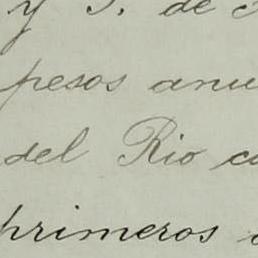 y J. de
pesos anu
del Rio co
primeros